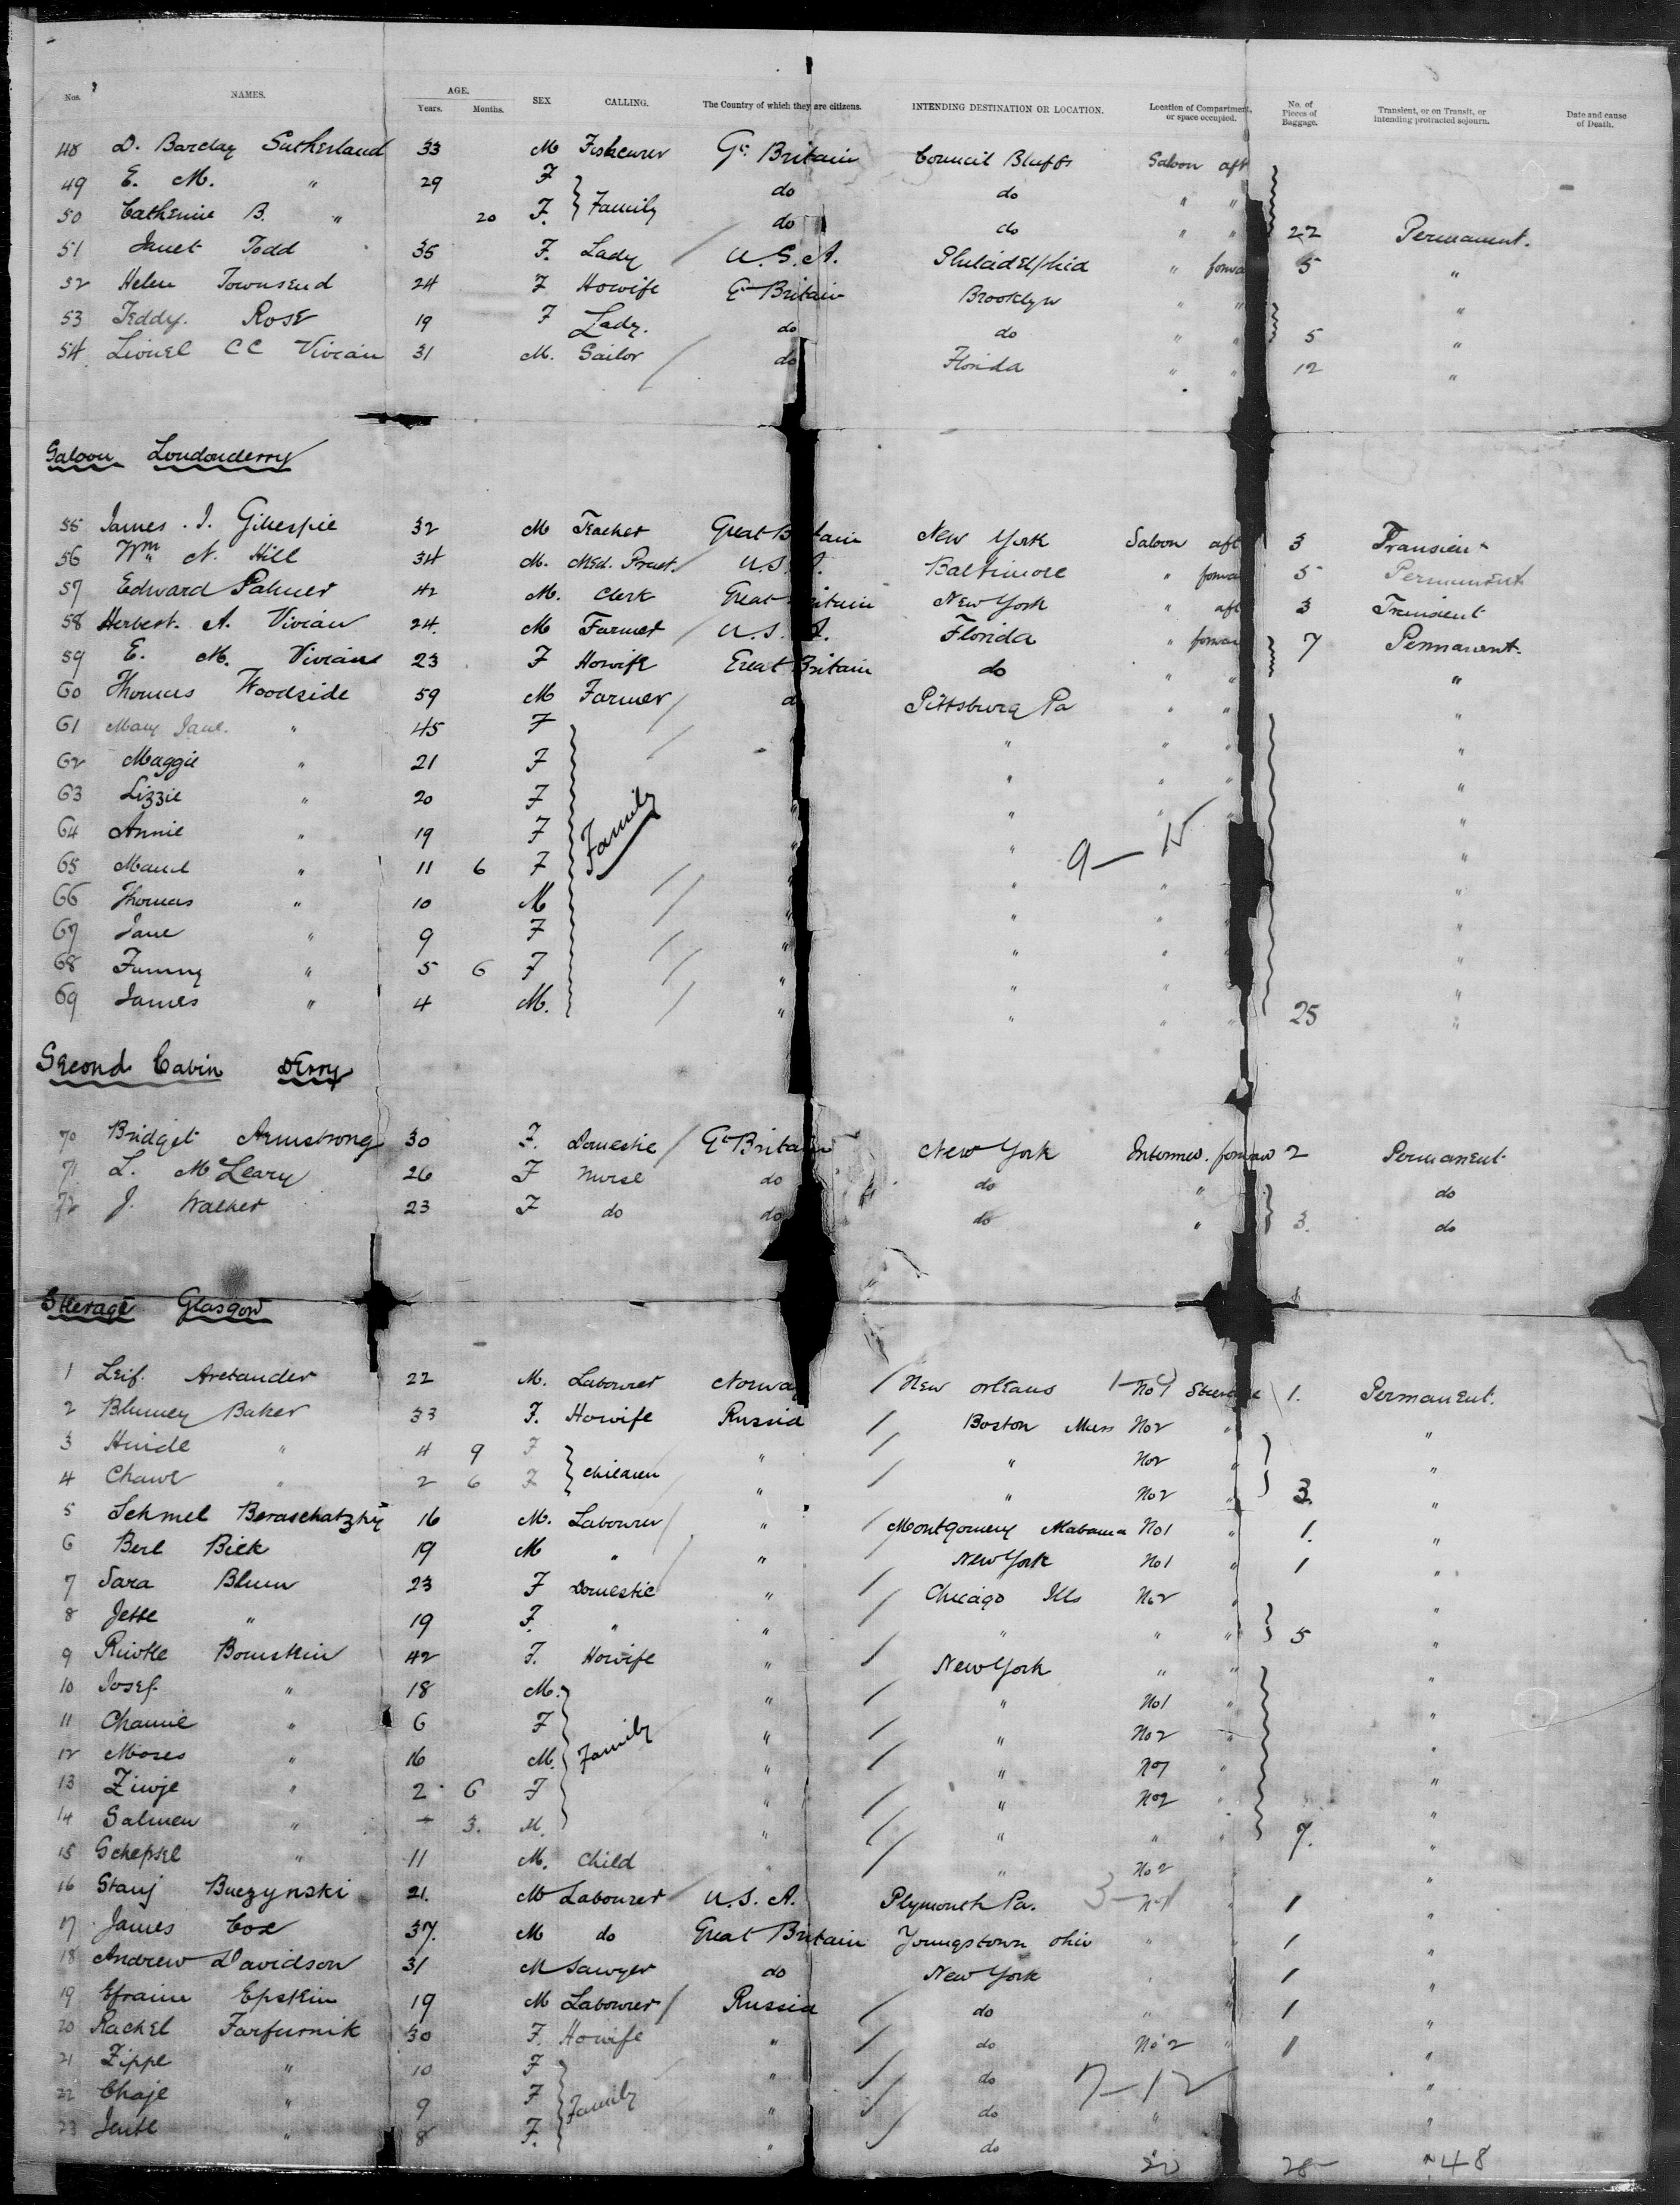 Nos. NAMES. AGE. Years. Months. SEX CALLING. The Country of which they are citizens. INTENDING DESTINATION OR LOCATION. Location of Compartment, or space occupied. No. of Pieces of Baggage. Transient, or on Transit, or intending protracted sojourn. Date and cause of Death.
48 D. Barclay Sutherland 33 M Fishcurer Gt. Britain Council Bluffs Saloon aft
49 E. M. " 29 F } Family do do " "
50 Catherine B. " 20 F. do do " " 22 Permanent.
51 Janet Todd 35 F. Lady U.S.A. Philadelphia " forwa 5 "
52 Helen Townsend 24 F Howife Gt Britain Brooklyn " " "
53 Teddy. Rose 19 F Lady. do do " " 5 "
54. Lionel CC Vivian 31 M. Sailor do Florida " " 12 "
Saloon Londonderry
55 James. J. Gillespie 32 M Teacher Great B tain New York Saloon aft 3 Transient
56 Wm N. Hill 34 M. Med. Pract. U.S. Baltimore " forwa 5 Permanent
57 Edward Palmer 42 M. Clerk Great itain New York " aft 3 Transient
58 Herbert. A. Vivian 24. M Farmer U.S. Florida " forwar 7 Permanent.
59 E. M. Vivian 23 F Howife Great Britain do " " "
60 Thomas Woodside 59 M Farmer d Pittsburg Pa " " "
61 Mary Jane. " 45 F " " " "
62 Maggie " 21 F " " " "
63 Lizzie " 20 F " " " " "
64 Annie " 19 F Family " " " " "
65 Maud " 11 6 F " " 9-15 " "
66 Thomas " 10 M " " " "
67 Jane " 9 F " " " "
68 Fanny " 5 6 F " " " "
69 James " 4 M. " " " " 25 "
Second Cabin Derry
70 Bridget Armstrong 30 F. Domestic Gt Britain New York Intermed. forward 2 Permanent
71 L. McLeary 26 F Nurse do do " do
72 J. Walker 23 F do do do " 3. do
Steerage Glasgow
1 Leif. Aretander 22 M. Labourer Norwa New Orleans No 1 Steerage 1. Permanent.
2 Blumey Baker 33 F. Howife Russia Boston Mass No2 " "
3 Huide " 4 9 F } children " " No2 " "
4 Chawe " 2 6 F " " No2 " 3. "
5 Schmel Beraschatzky 16 M. Labourer " Montgomery Alabama No1 " 1. "
6 Berl Bick 19 M " " New York No1 " 1 "
7 Sara Blum 23 F Domestic " Chicago Ills No2 " "
8 Jette " 19 F. " " " " " 5 "
9 Riwke Bomskin 42 F. Howife " New York " " "
10 Josef " 18 M. " " No1 " "
11 Chamie " 6 F Family " " No2 " "
12 Moses " 16 M. " " No1 " "
13 Ziwje " 2 6 F " " No2 " "
14 Salmen " - 3. M. " " " " 7. "
15 Schepsel " 11 M. Child " " No2 " "
16 Stanj Buczynski 21. M Labourer U.S.A. Plymouth Pa. 3- No1 " 1 "
17 James Cox 37. M do Great Britain Youngstown Ohio " " 1 "
18 Andrew Davidson 31 M Sawyer do New York " " 1 "
19 Efraim Epskin 19 M Labourer Russia do " " 1 "
20 Rachel Farfurnik 30 F. Howife " do No 2 " 1 "
21 Zippe " 10 F " do 7-12 "
22 Chaje " 9 F Family " do " "
23 Jente " 8 F. " do
20 28 48